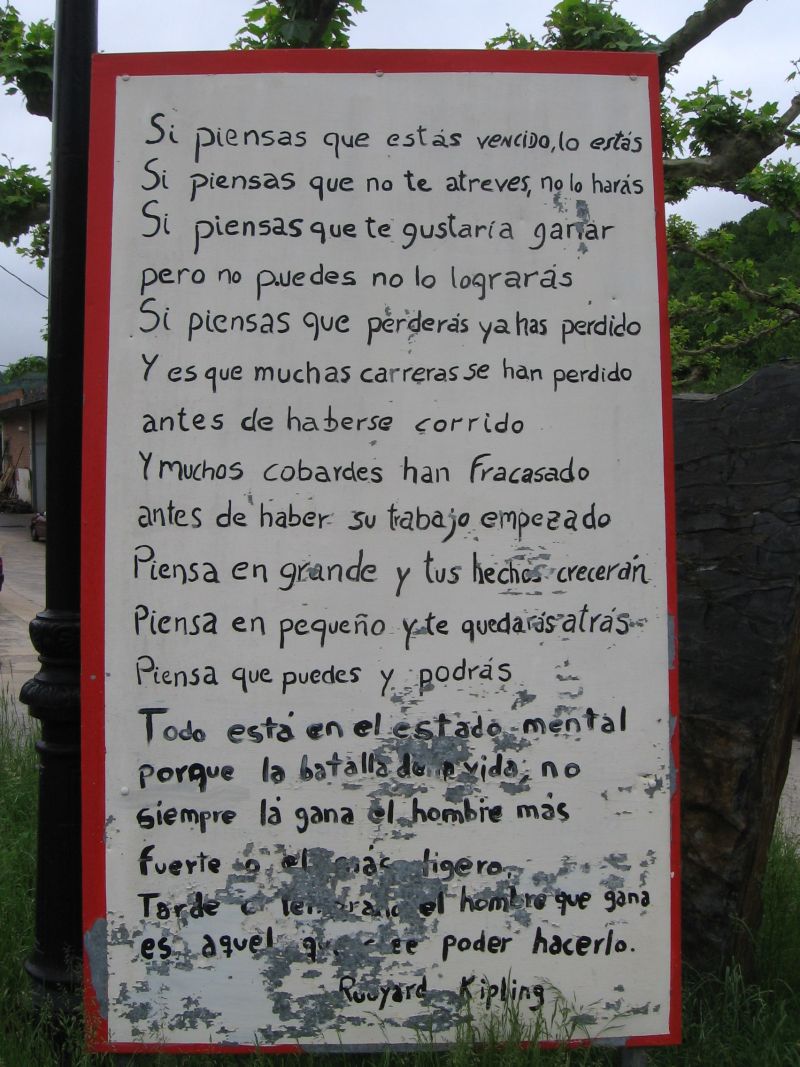 Si piensas que estás vencido, lo estás
Si piensas que no te atreves, no lo harás
Si piensas que te gustaría ganar
pero no puedes no lo lograrás
Si piensas que perderás ya has perdido
Y es que muchas carreras se han perdido
antes de haberse corrido
Y muchos cobardes han fracasado
antes de haber su trabajo empezado
Piensa en grande y tus hechos crecerán
Piensa en pequeño y te quedarás atrás
Piensa que puedes y podrás
Todo está en el estado mental
porque la batalla de la vida, no
siempre la gana el hombre más
fuerte o el más ligero.
Tarde o temprano el hombre que gana
es aquel que cree poder hacerlo.
Ruuyard Kipling